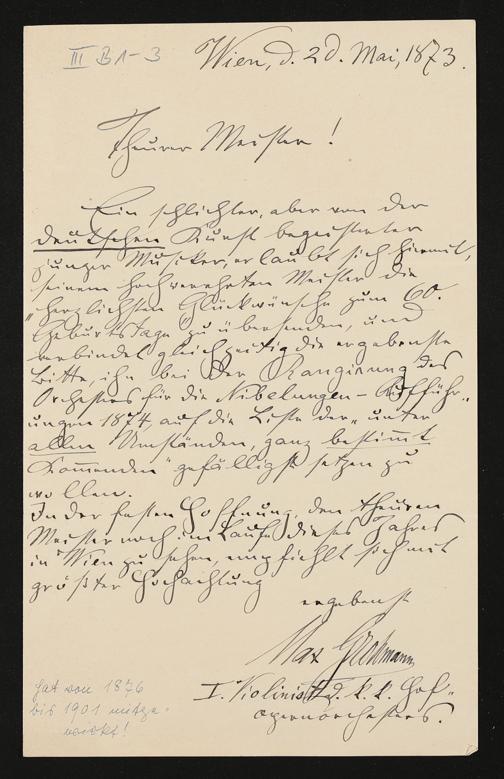 III B 1-3
Wien, d. 2d. Mai, 1873.
Theurer Meister!
Ein schlichter, aber von der
deutschen Kunst begeisterter
junger Musiker, erlaubt sich hiemit,
seinem hochverehrten Meister die
„herzlichsten Glückwünsche zum 60.
Geburtstage“ zu übersenden, und
verbindet gleichzeitig die ergebenste
Bitte, ihn bei der Rangirung des
Orchesters für die Nibelungen-Aufführ„
ungen 1874, auf die Liste der „unter
allen Umständen, ganz bestimmt
Kommenden“ gefälligst setzen zu
wollen.
In der festen Hoffnung, den theuren
Meister noch im Laufe dieses Jahres
in Wien zu sehen, empfiehlt sich mit
größter Hochachtung
ergebenst
Max
I. Violinist d. k. k. Hof„
opernorchesters.
hat von 1876
bis 1901 mitge-
wirkt!